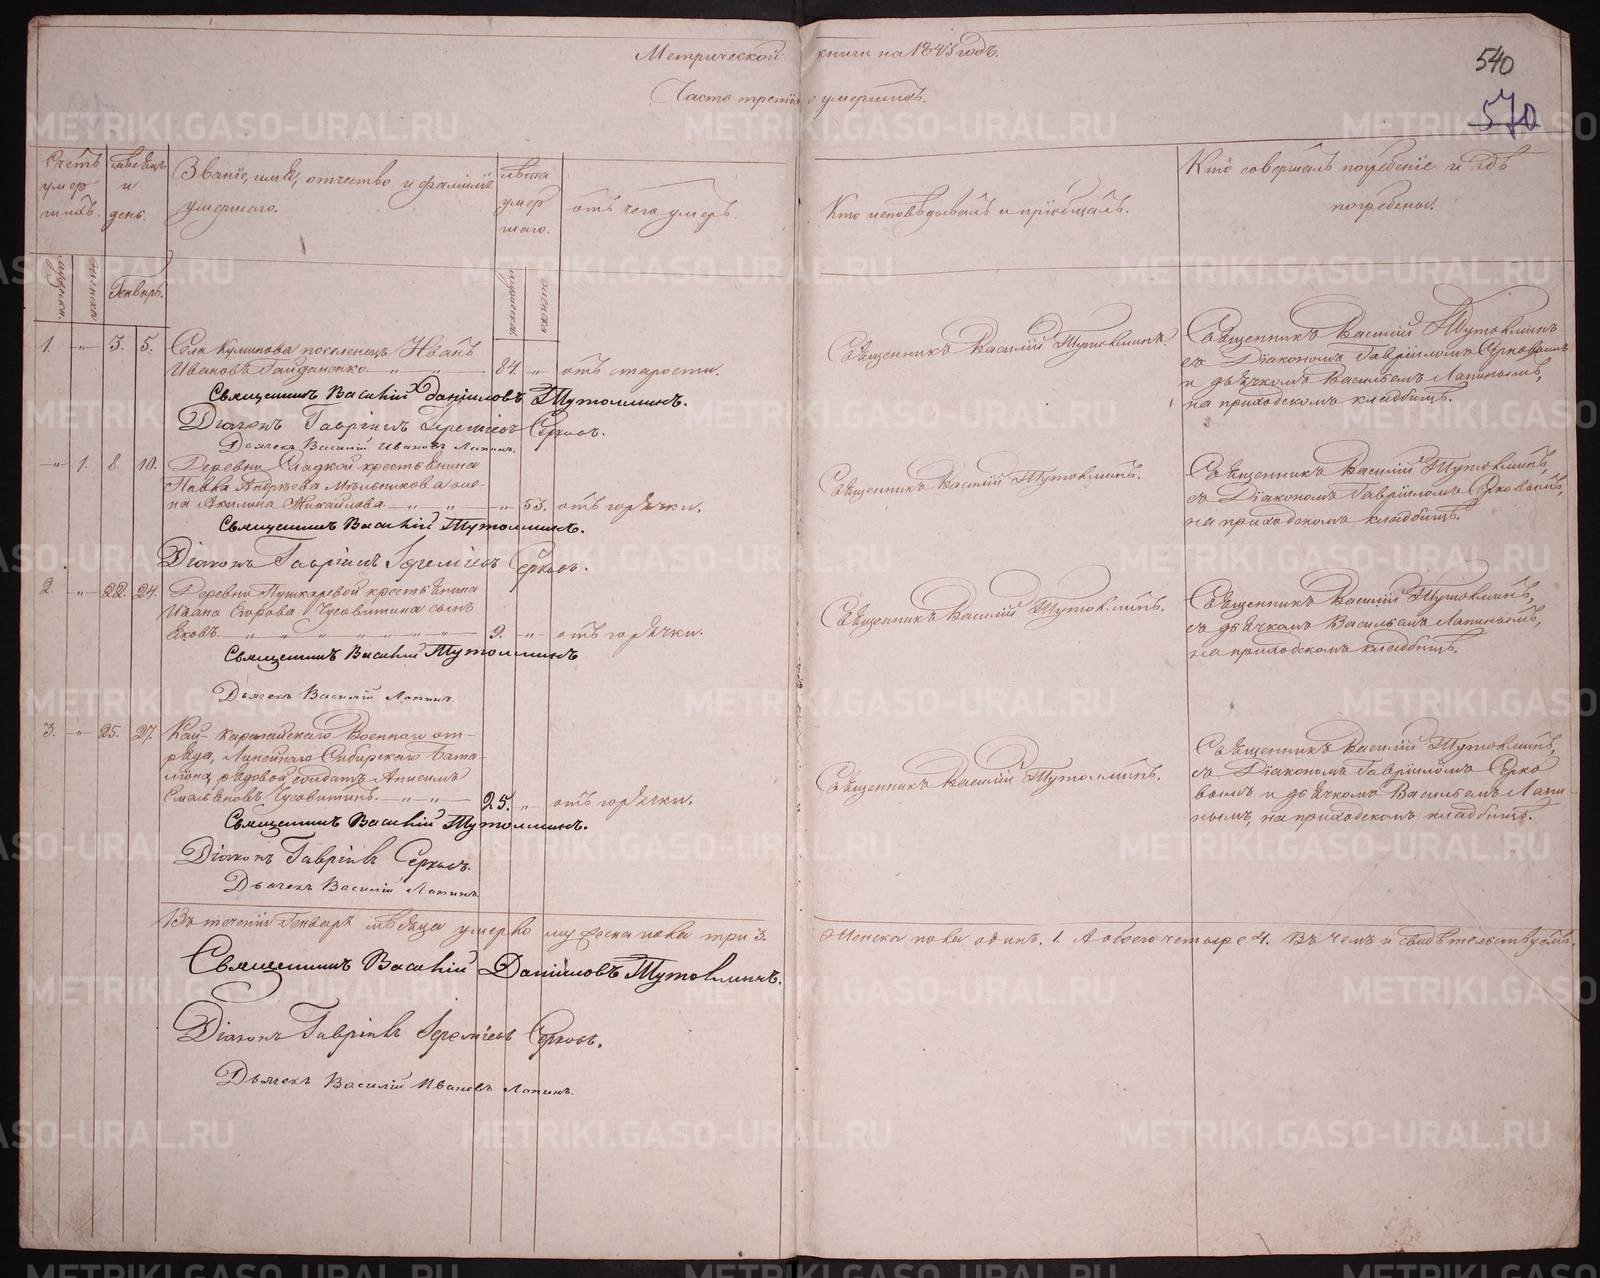 Метрической книги на 1843 годъ.
540
Часть третія о умершихъ.
570
Счетъ умершихъ.
Мѣсяцъ и день.
Званіе, имя, отчество и фамилія умершаго.
Лѣта умершаго.
отъ чего умеръ.
Кто исповѣдывалъ и пріобщалъ.
Кто совершалъ погребеніе и гдѣ погребены.
мужеска.
женска
Генварь.
мужеска.
женска
1. " 3. 5. Села Куликова поселенецъ Иванъ
Ивановъ Гайданенко. " " 84. " отъ старости.
Священникъ Василій Тутолминъ.
Священникъ Василій Тутолминъ
съ Діакономъ Гавріиломъ Серковымъ
и дьячкомъ Васильемъ Лапинымъ,
на приходскомъ кладбищѣ.
Священникъ Василій Даніиловъ Тутолминъ.
Діаконъ Гавріилъ Іереміевъ Серковъ.
Дьячекъ Василій Ивановъ Лапинъ.
" 1. 8. 10. Деревни Гладкой крестьянина
Павла Андреева Мѣльникова жена
Акилина Михайлова. " " " 53. отъ горячки.
Священникъ Василій Тутолминъ.
Священникъ Василій Тутолминъ,
съ Діакономъ Гавріиломъ Серковымъ,
на приходскомъ кладбищѣ.
Священникъ Василій Тутолминъ.
Діаконъ Гавріилъ Іереміевъ Серковъ.
2. " 22. 24. Деревни Пушкаревой крестьянина
Ивана Егорова Чусовитина сынъ
Яковъ. " " " " " " " 9. " отъ горячки.
Священникъ Василій Тутолминъ.
Священникъ Василій Тутолминъ,
съ дьячкомъ Васильемъ Лапинымъ,
на приходскомъ кладбищѣ.
Священникъ Василій Тутолминъ
Дьячекъ Василій Лапинъ.
3. " 25. 27. Военнаго от-
ряда, Линейнаго Сибирскаго бата-
ліона, рядовой солдатъ Анисимъ
Чусовитинъ. " " 25. " отъ горячки.
Священникъ Василій Тутолминъ.
Священникъ Василій Тутолминъ,
съ Діакономъ Гавріиломъ Серко
вымъ и дьячкомъ Васильемъ Лапи-
нымъ, на приходскомъ кладбищѣ.
Священникъ Василій Тутолминъ.
Діаконъ Гавріилъ Серковъ.
Дьячекъ Василій Лапинъ
Въ теченіи Генваря мѣсяца умерло мужеска пола три 3. Женска пола одинъ. 1. А обоего четыре 4. Въ чемъ и свидѣтельствуемъ.
Священникъ Василій Даніиловъ Тутолминъ.
Діаконъ Гавріилъ Іереміевъ Серковъ.
Дьячекъ Василій Ивановъ Лапинъ.
METRIKI.GASO-URAL.RU